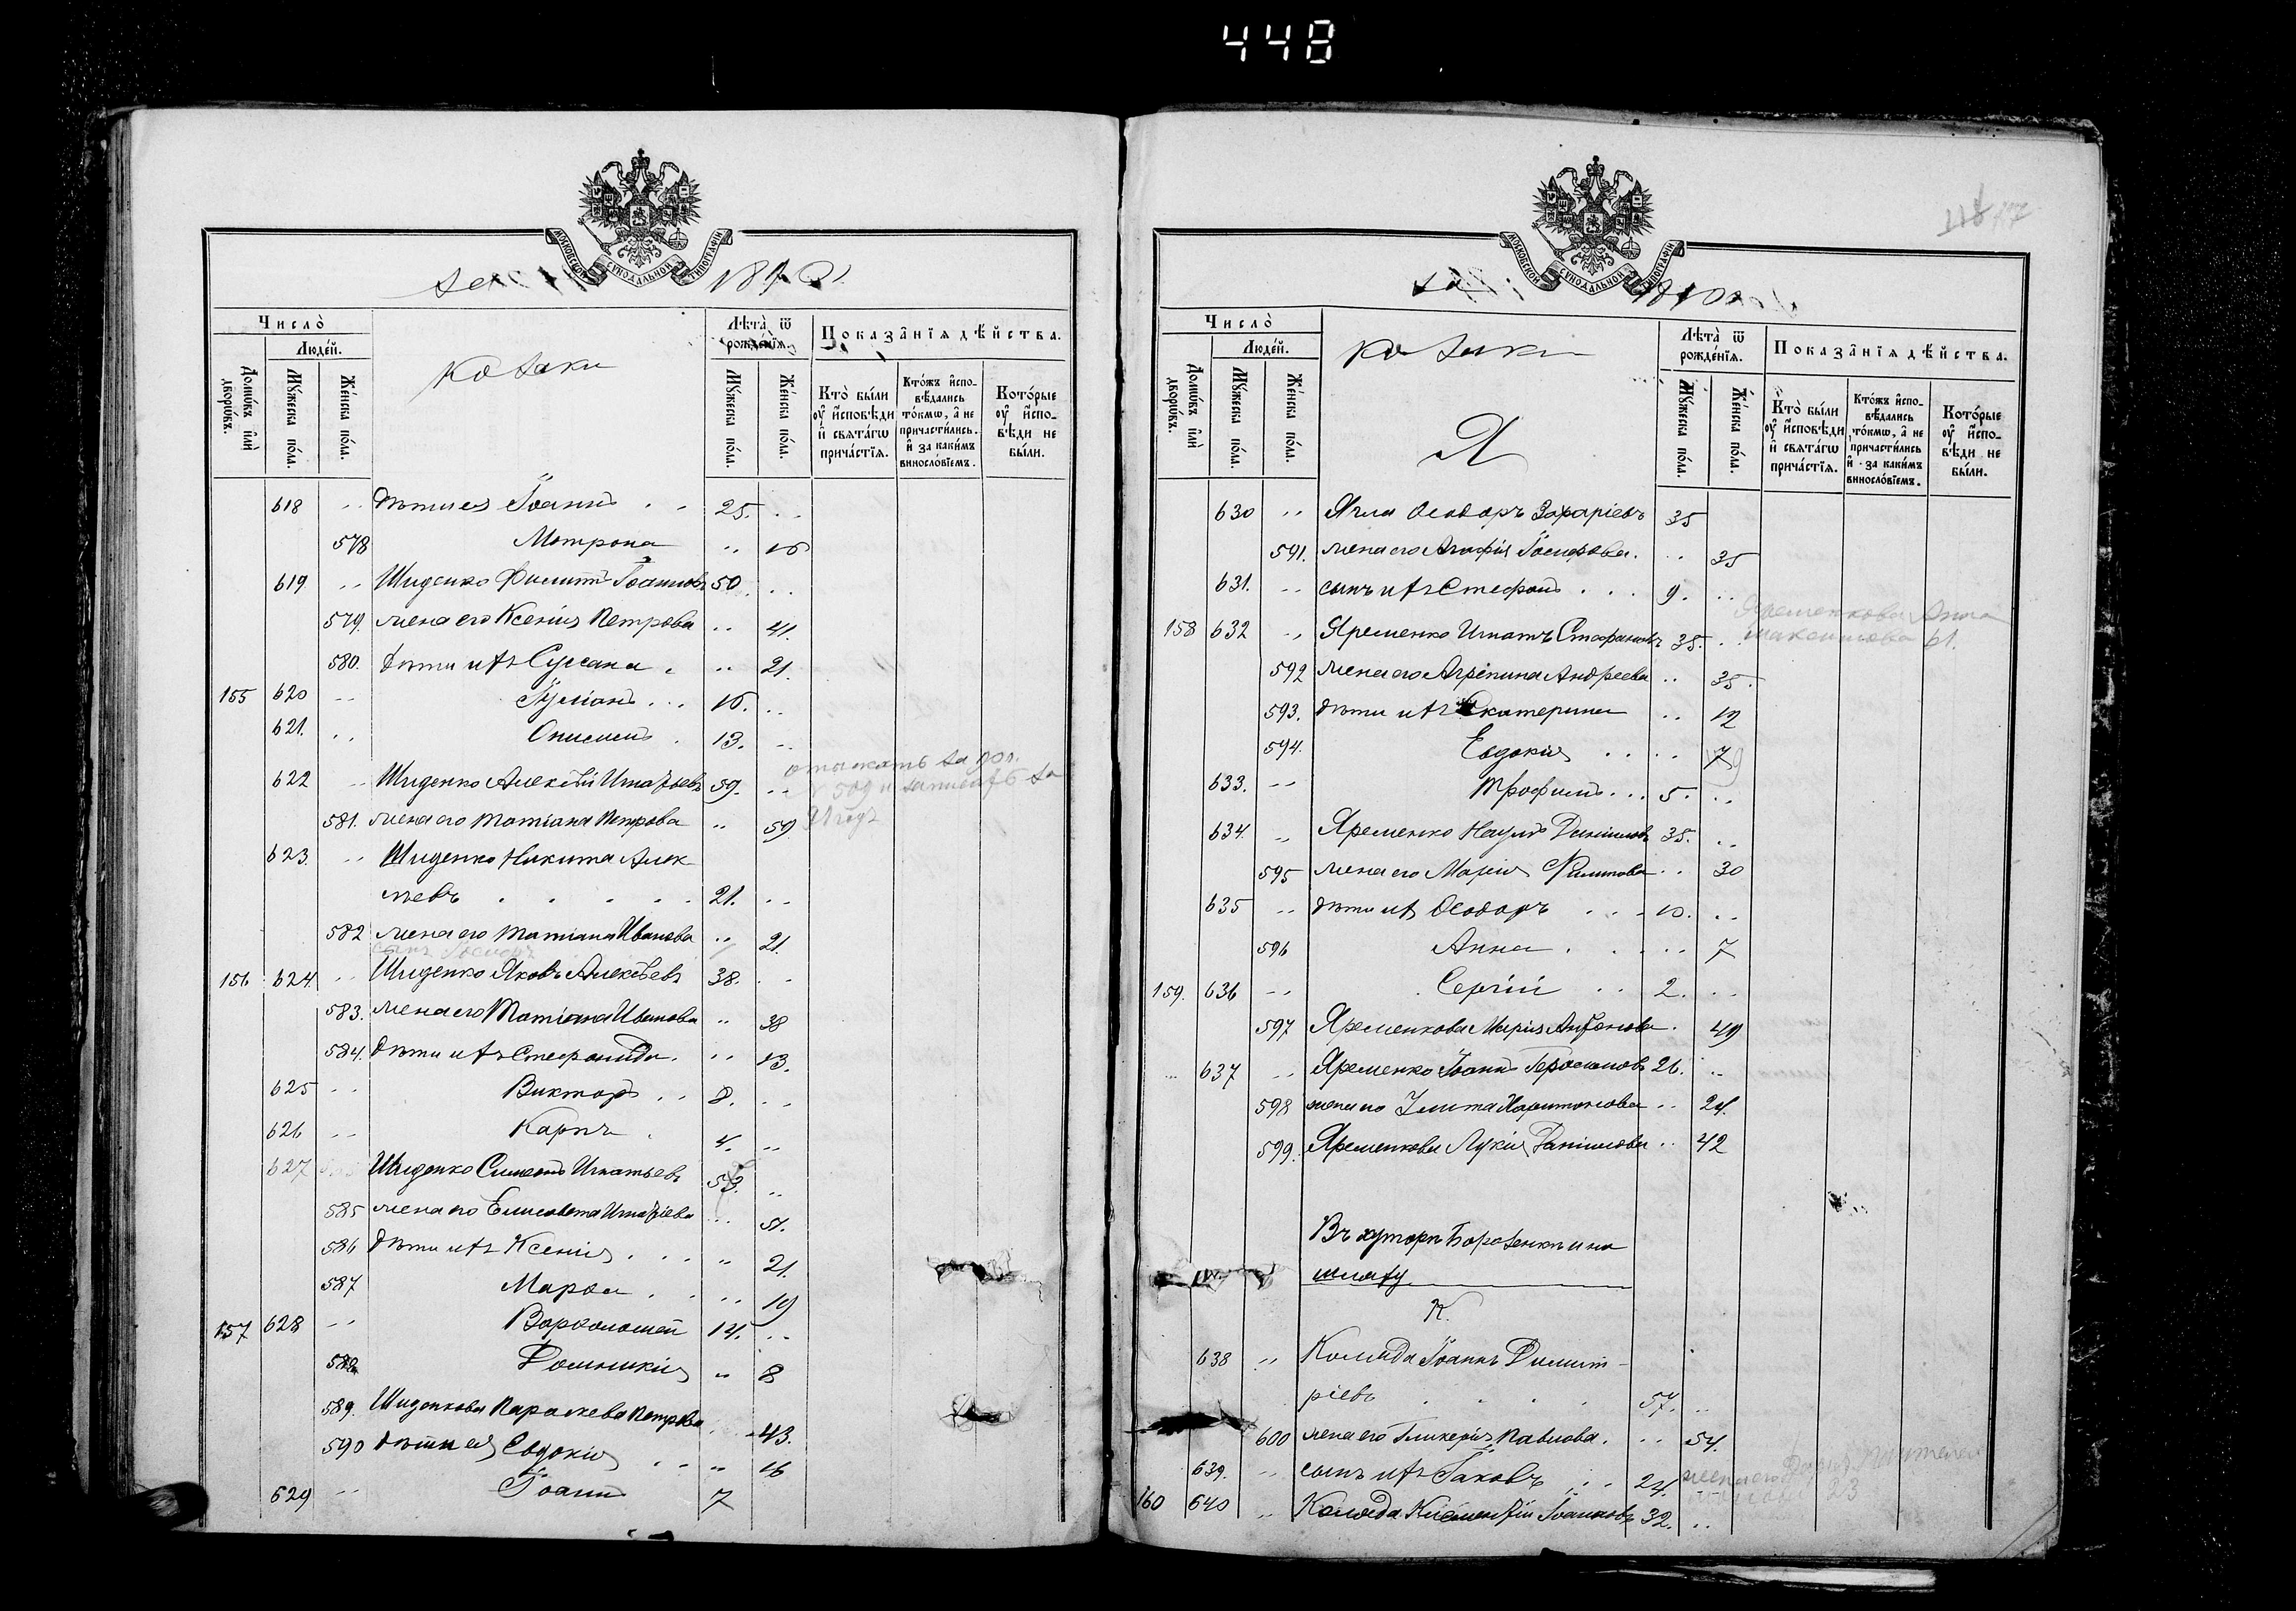 448
МОСКОВСКОЙ СѴНОДАЛЬНОЙ ТИПОГРАФІИ
Число̀
Людéй.
Домѡ́въ и҆лѝ дворѡ́въ.
Мꙋ́жеска по́ла.
Же́нска по́ла.
козаки
Лѣта̀ ѿ рожде́нїѧ.
Мꙋ́жеска по́ла.
Же́нска по́ла.
Показа̑нїѧ дѣ́йства.
Кто̀ бы́ли ᲂу҆ и҆сповѣ́ди и҆ свѧта́гѡ прича́стїѧ.
Кто́жъ и҆сповѣ́дались то́кмѡ, а҆ не причасти́лись. и҆ за каки́мъ винosло́вїемъ.
Кото́рые ᲂу҆ и҆сповѣ́ди не бы́ли.
618 дѣти ея Іоаннъ 25.
578 Мотрона 16
619 Шиденко Филиппъ Іоанновъ 50
579. жена его Ксенія Петрова 41.
580. дѣти ихъ Сусанна 21.
155 620 Іуліанъ 16.
621. Онисимъ 13.
622 Шиденко Алексѣй Игнатьевъ 59.
отыскать за
№ 509 и записать за
581. жена его Татіана Петрова 59
623. Шиденко Никита Алек
сѣевъ 21.
582 жена его Татіана Иванова 21.
сынъ Іосифъ
156 624. Шиденко Яковъ Алексѣевъ 38.
583. жена его Татіана Иванова 38
584. дѣти ихъ Стефанида 13.
625 Викторъ 8.
626 Карпъ 4.
627 Шиденко Симеонъ Игнатьевъ 53.
585 жена его Елисавета Игнатіева 51.
586 дѣти ихъ Ксенія 21.
587 Марѳа 19
157 628 Варѳоломей 14.
588 Домникія 8
589. Шиденкова Параскева Петрова 43.
590 дѣти ея Евдокія 16
629 Іоаннъ 7
МОСКОВСКОЙ СѴНОДАЛЬНОЙ ТИПОГРАФІИ
Число̀
Людéй.
Домѡ́въ и҆лѝ дворѡ́въ.
Мꙋ́жеска по́ла.
Же́нска по́ла.
козаки
Лѣта̀ ѿ рожде́нїѧ.
Мꙋ́жеска по́ла.
Же́нска по́ла.
Показа̑нїѧ дѣ́йства.
Кто̀ бы́ли ᲂу҆ и҆сповѣ́ди и҆ свѧта́гѡ прича́стїѧ.
Кто́жъ и҆сповѣ́дались то́кмѡ, а҆ не причасти́лись и҆ за каки́мъ винosло́вїемъ.
Кото́рые ᲂу҆ и҆сповѣ́ди не бы́ли.
Я
630 Ягла Ѳеодоръ Захаріевъ 35
591. жена его Агафія Іосифова. 35
631. сынъ ихъ Стефанъ 9.
Яременкова Анна
Максимова 61.
158 632 Яременко Игнатъ Стефановъ 35.
592 жена его Агрипина Андреева 35.
593. дѣти ихъ Екатерина 12
594. Евдокія 7
633. Трофимъ 5.
634. Яременко Наумъ Даніиловъ 35.
595 жена его Марія Филипова 30
635 дѣти ихъ Ѳеодоръ 10.
596 Анна 7
159. 636 Сергій 2.
597 Яременкова Марія Антонова 49
637 Яременко Іоаннъ Герасимовъ 26.
598 жена его Улита Харитонова 24.
599. Яременкова Лукія Даніилова 42
Въ хуторѣ Борозенкѣ и на
шляху
К.
638 Коляда Іоаннъ Димит-
ріевъ 57.
600 жена его Гликерія Павлова. 54.
639. сынъ ихъ Іаковъ 24.
жена его Дарія
23
160 640 Коляда Климентій Іоанновъ 32.